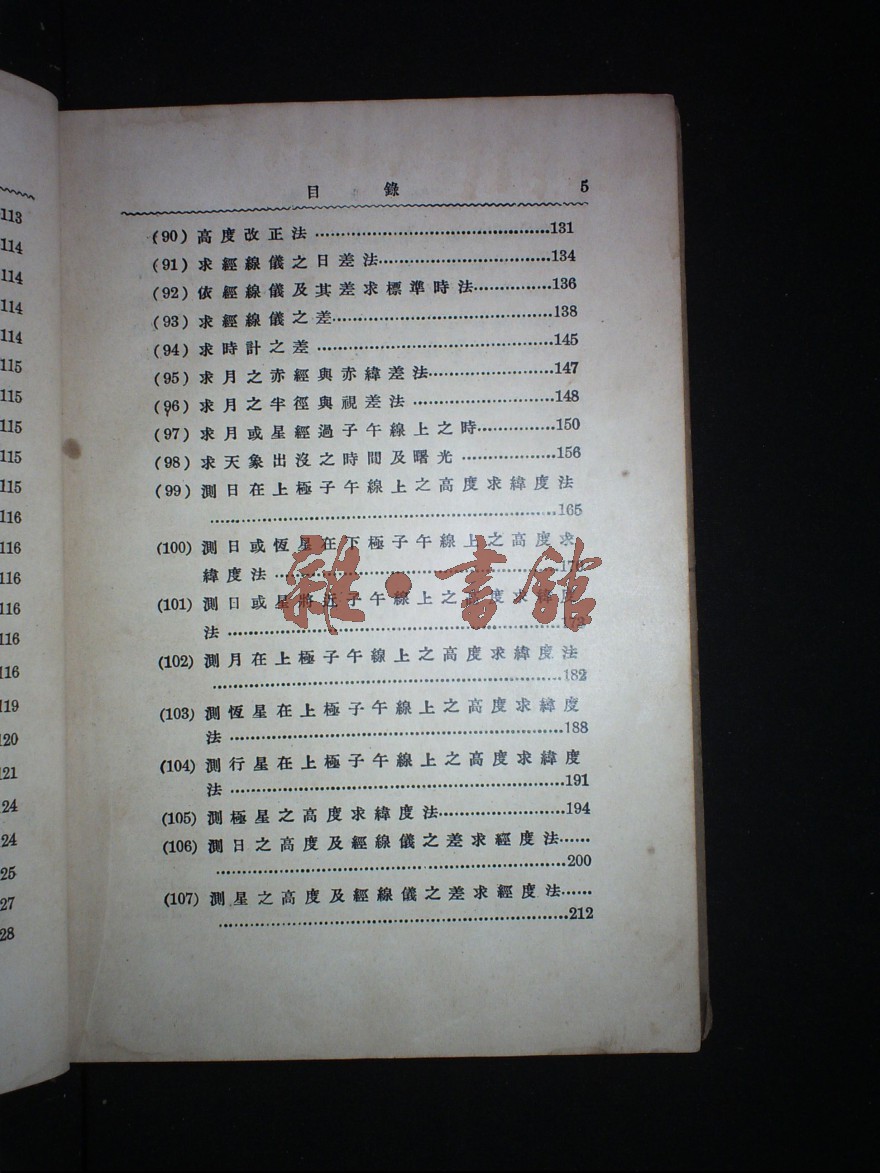 113
114
114
114
114
115
115
115
115
115
116
116
116
116
116
116
119
120
121
124
124
125
127
128
目 錄 5
(90) 高度改正法 ……131
(91) 求經線儀之日差法……134
(92) 依經線儀及其差求標準時法……136
(93) 求經線儀之差……138
(94) 求時計之差 ……145
(95) 求月之赤經與赤緯差法……147
(96) 求月之半徑與視差法 ……148
(97) 求月或星經過子午線上之時……150
(98) 求天象出沒之時間及曙光 ……156
(99) 測日在上極子午線上之高度求緯度法
……165
(100) 測日或恆星在下極子午線上之高度求
緯度法 ……
(101) 測日或星將近子午線上之高度求緯度
法 ……173
(102) 測月在上極子午線上之高度求緯度法
……182
(103) 測恆星在上極子午線上之高度求緯度
法 ……188
(104) 測行星在上極子午線上之高度求緯度
法 ……191
(105) 測極星之高度求緯度法……194
(106) 測日之高度及經線儀之差求經度法……
……200
(107) 測星之高度及經線儀之差求經度法……
……212
雜·書館